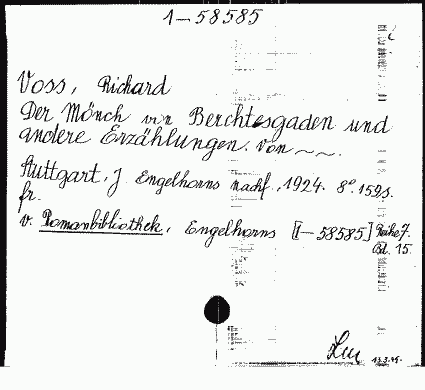 1-58585
Voss, Richard
Der Mönch von Berchtesgaden und
andere Erzählungen. Von ~~.
Stuttgart, J. Engelhorns Nachf., 1924. 8°. 159 S.
fr.
v. Romanbibliothek, Engelhorns [1-58585] Reihe 7.
Bd. 15.